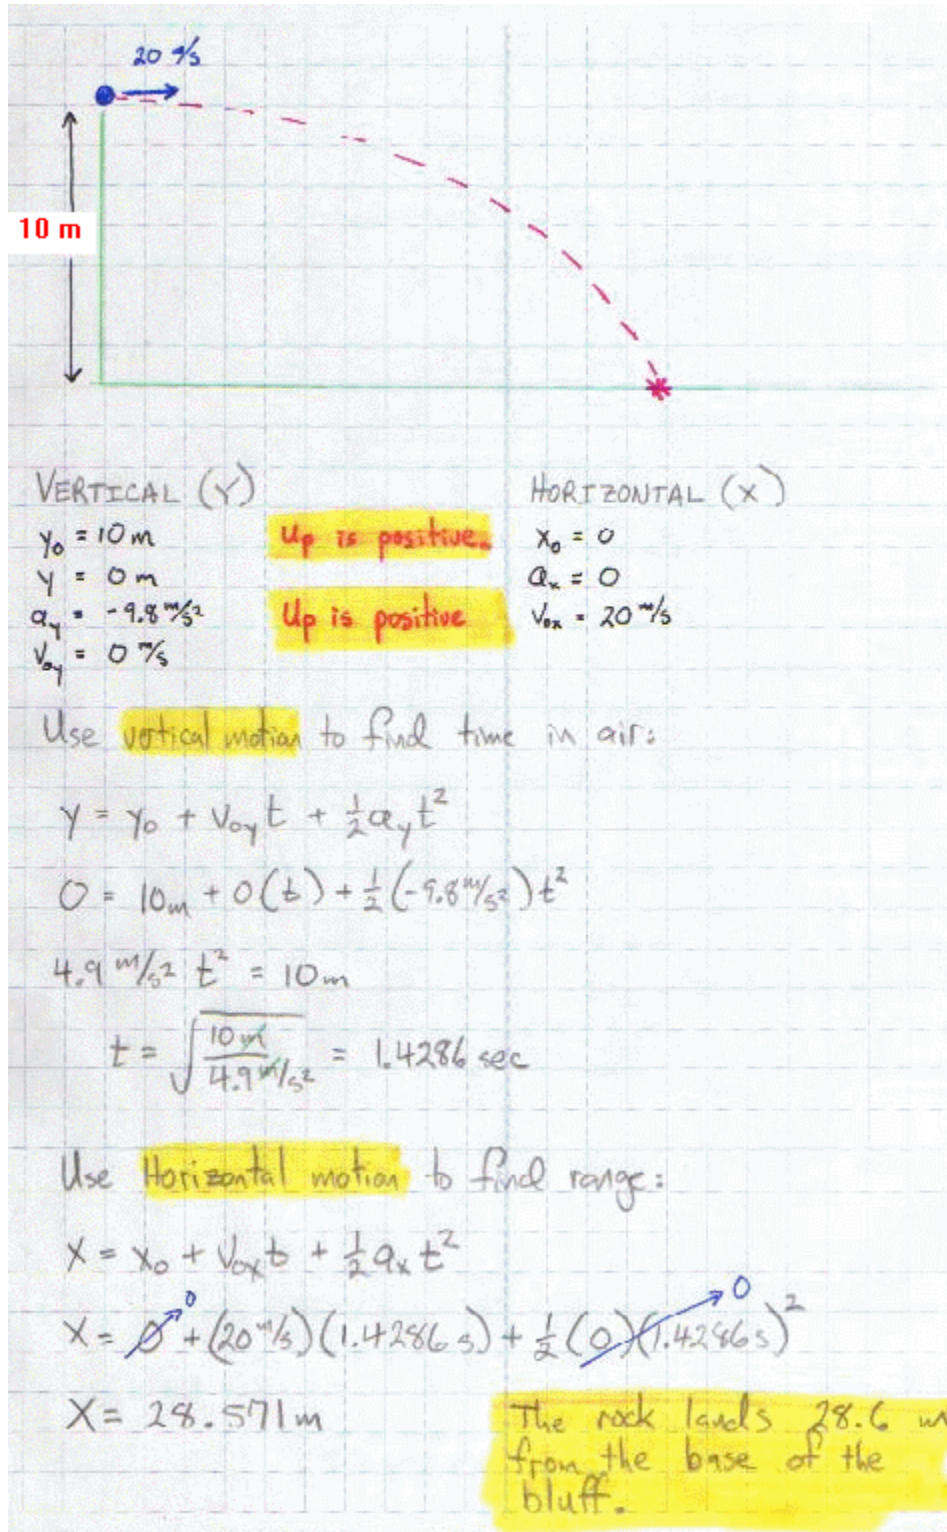 20 m/s
10 m
VERTICAL (Y)
y₀ = 10 m
y = 0 m
a_y = -9.8 m/s²
v_oy = 0 m/s
Up is positive.
Up is positive
HORIZONTAL (X)
x₀ = 0
a_x = 0
v_ox = 20 m/s
Use vertical motion to find time in air:
y = y₀ + v_oy t + ½ a_y t²
0 = 10m + 0(t) + ½(-9.8 m/s²)t²
4.9 m/s² t² = 10m
t = √(10 m / 4.9 m/s²) = 1.4286 sec
Use Horizontal motion to find range:
X = x₀ + v_ox t + ½ a_x t²
0 0
X = 0 + (20 m/s)(1.4286 s) + ½(0)(1.4286 s)²
X = 28.571 m
The rock lands 28.6 m
from the base of the
bluff.